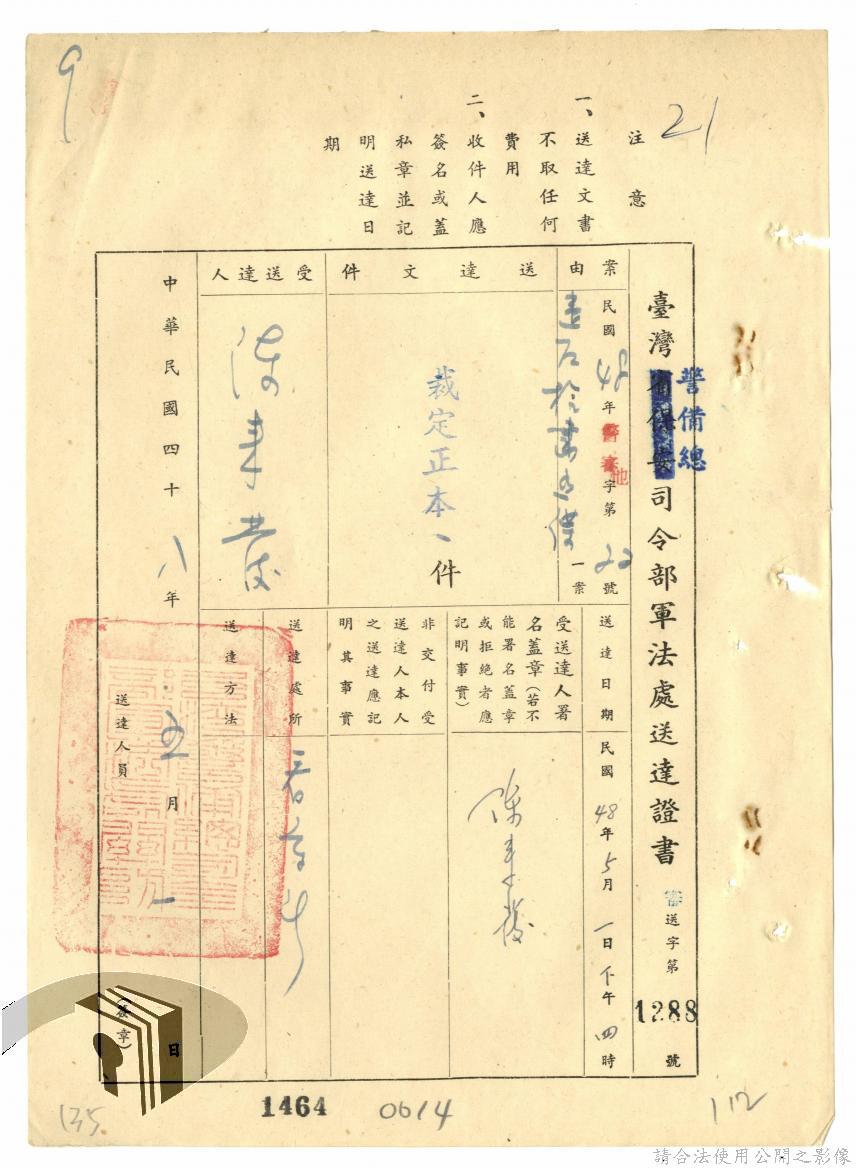 9
21
注意
一、送達文書
不取任何
費用
二、收件人應
簽名或蓋
私章並記
明送達日
期
臺灣警備總司令部軍法處送達證書
審送字第1288號
案由
民國48年警審字第22號
一案
送達文件
裁定正本一件
受送達人
送達日期
民國48年5月一日下午四時
受送達人署
名蓋章(若不
能署名蓋章
或拒絕者應
記明事實)
非交付受
送達人本人
之送達應記
明其事實
送達處所
看守所
送達方法
中華民國四十八年五月一日
送達人員
(簽章)
135
1464
0614
112
請合法使用公開之影像